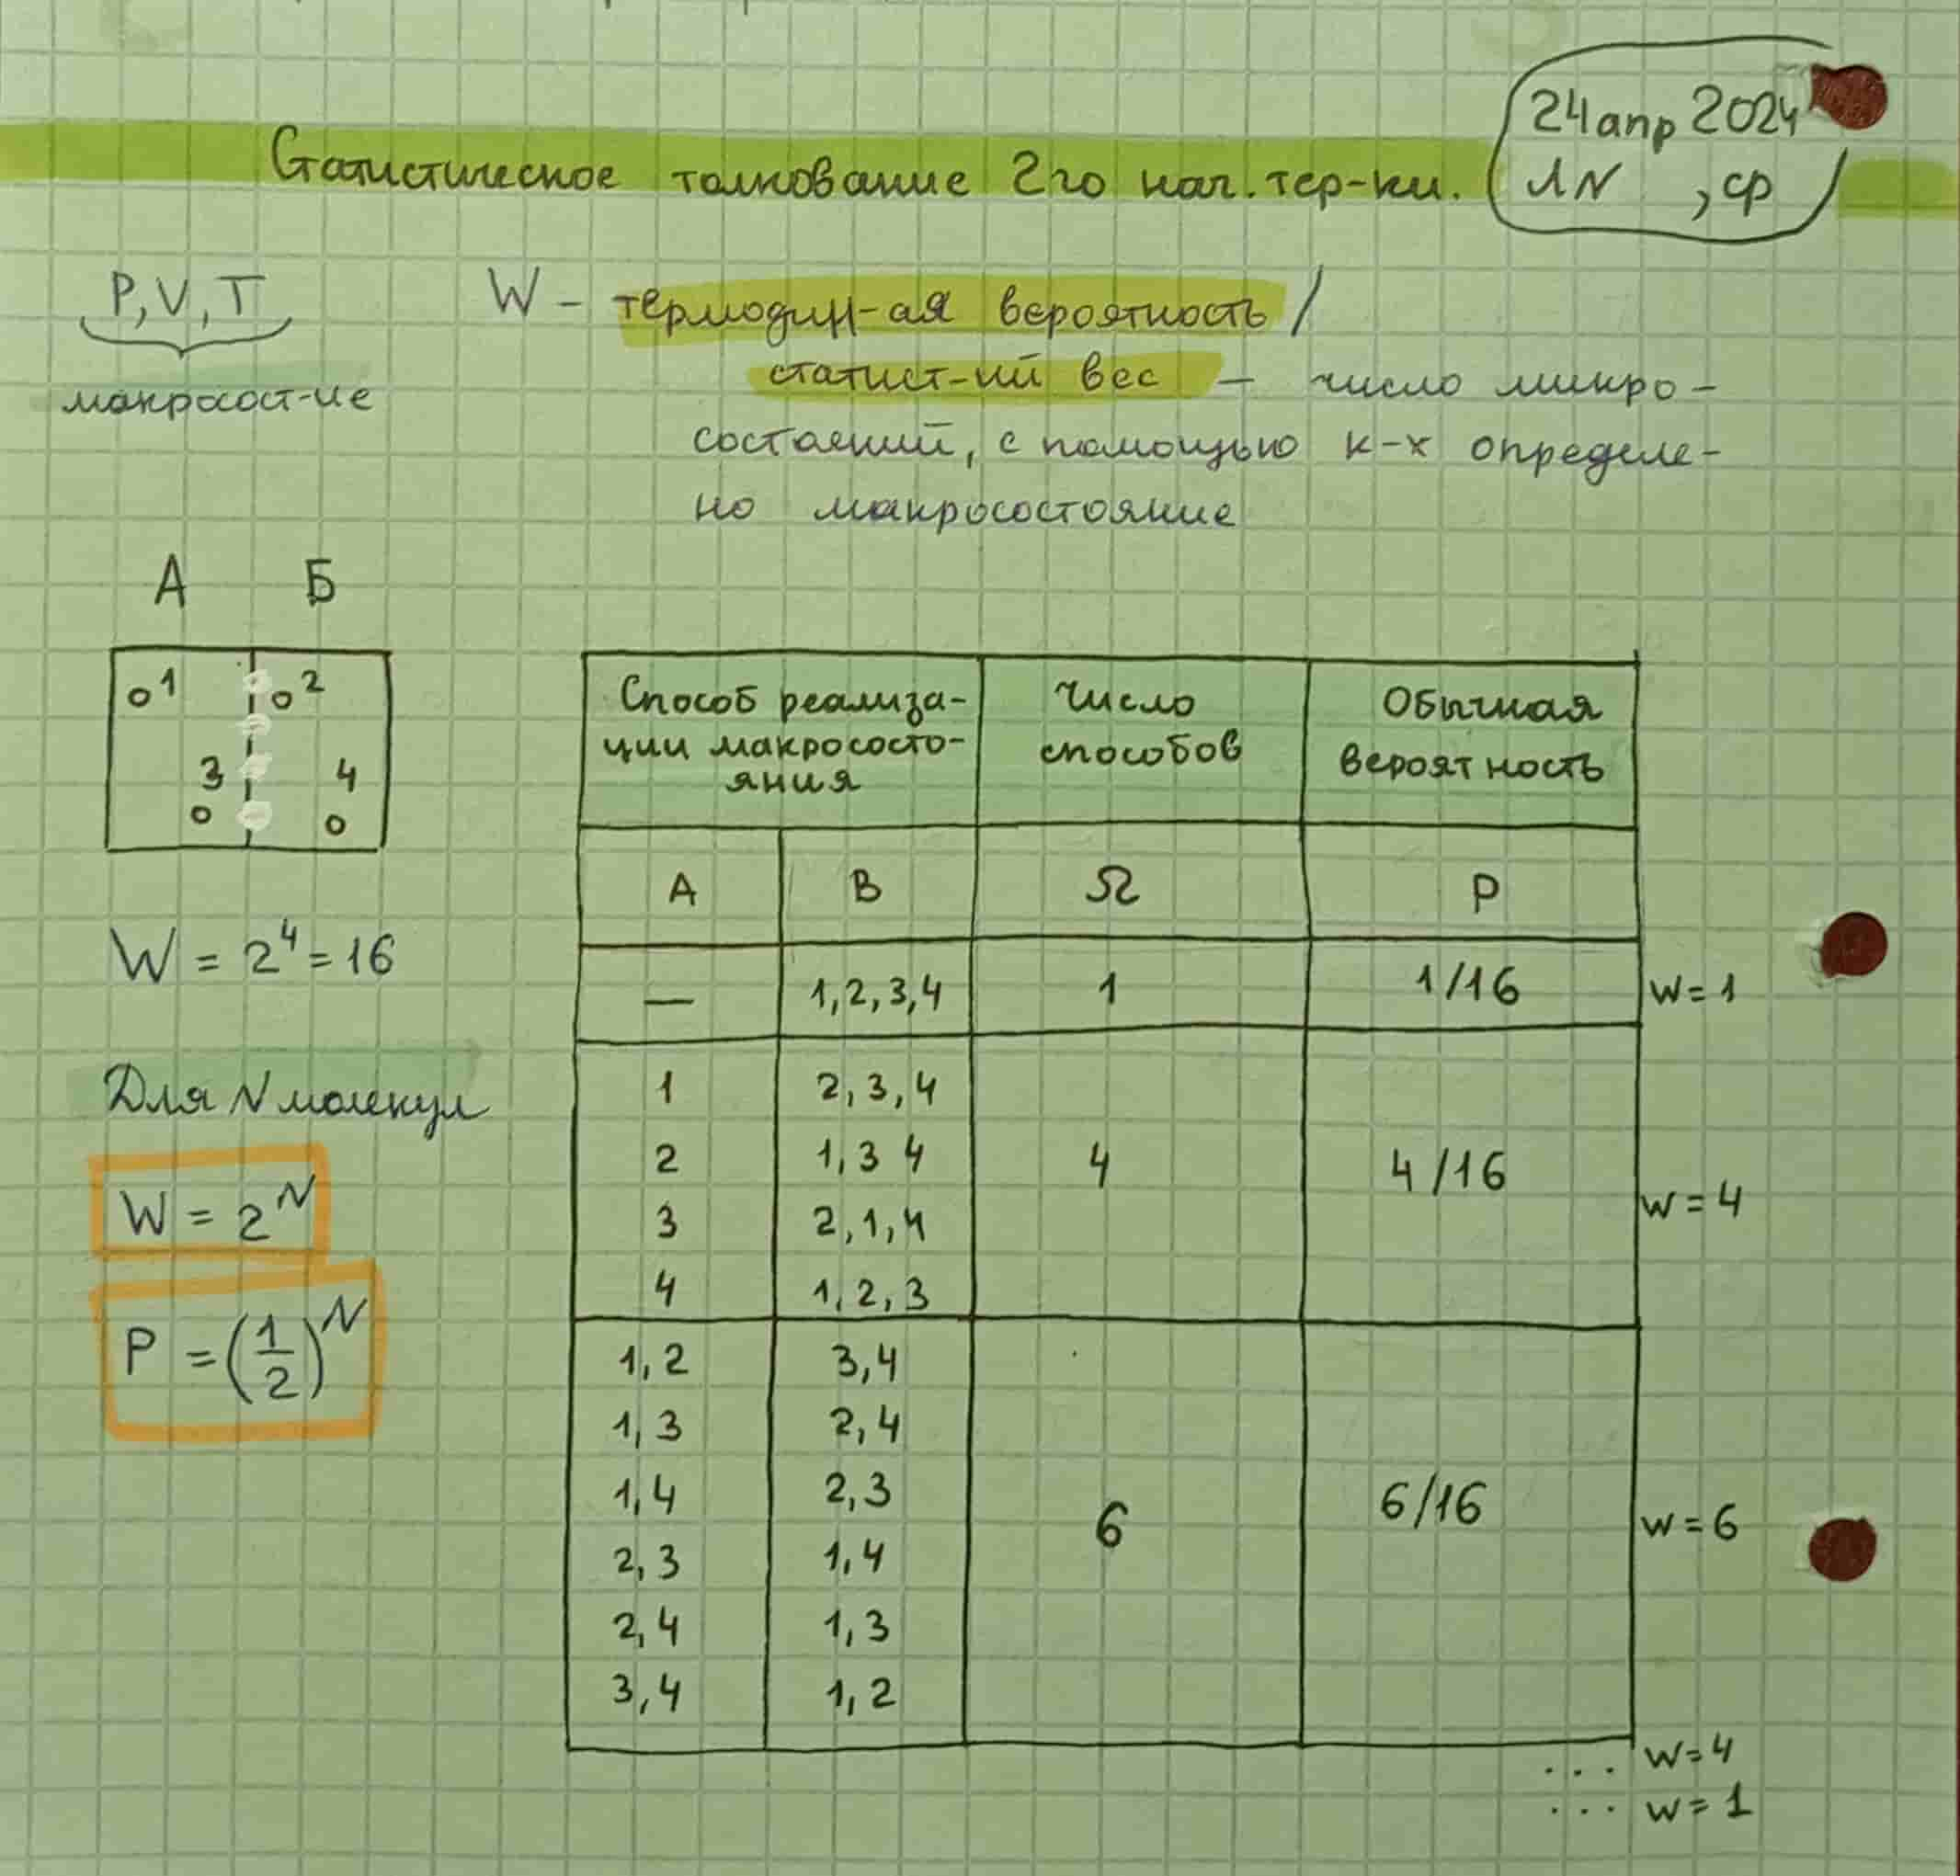 Статистическое толкование 2го нач. тер-ки.
24 апр 2024
ЛN , ср
P, V, T
макросост-ие
W - термодин-ая вероятность /
статист-ий вес - число микро-
состояний, с помощью к-х определе-
но макросостояние
А Б
1 2
3 4
W = 2⁴ = 16
Для N молекул
W = 2^N
P = (1/2)^N
Способ реализа-
ции макрососто-
яния
Число
способов
Обычная
вероятность
A B Ω P
— 1,2,3,4 1 1/16 w = 1
1 2,3,4
2 1,3 4 4 4/16
3 2,1,4 w = 4
4 1,2,3
1,2 3,4
1,3 2,4
1,4 2,3 6 6/16 w = 6
2,3 1,4
2,4 1,3
3,4 1,2
... w = 4
... w = 1